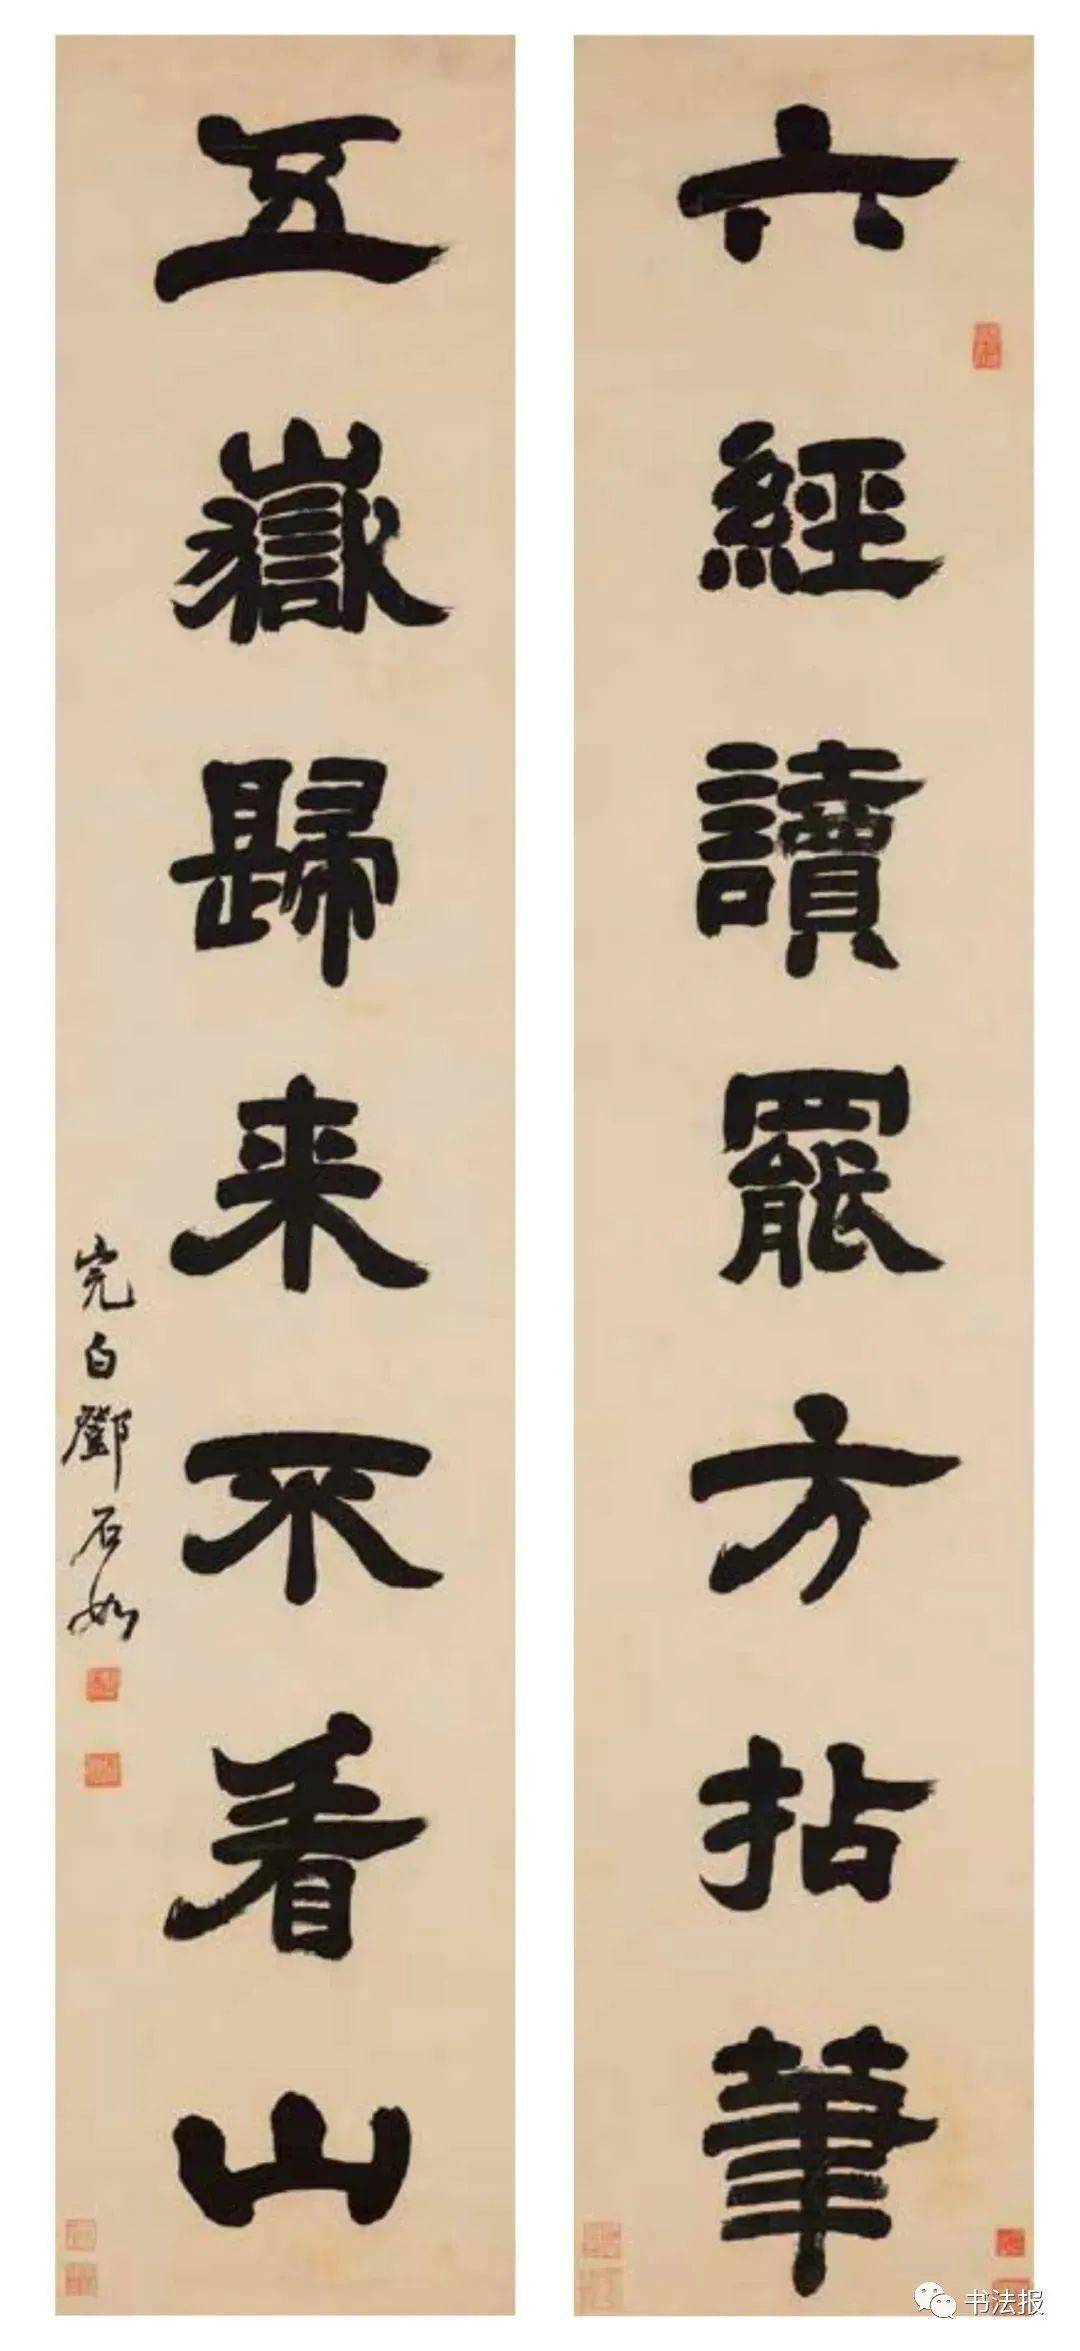 六經讀罷方拈筆
五嶽歸来不看山
完白鄧石如
书法报